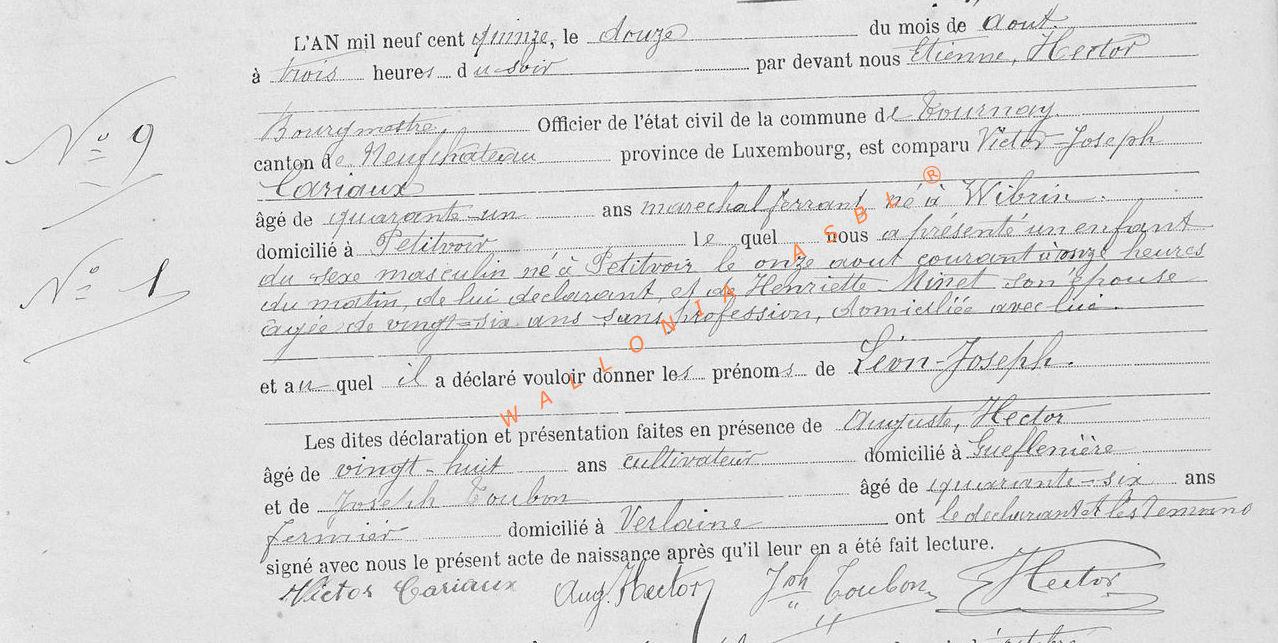 L'AN mil neuf cent quinze, le douze du mois de aout.
à trois heures du soir par devant nous Etienne, Hector
Bourgmestre, Officier de l'état civil de la commune de Tournay
N° 9
canton de Neufchateau province de Luxembourg, est comparu Victor-Joseph
Cariaux
âgé de quarante-un ans marechal ferrant né à Wibrin.
domicilié à Petitvoir lequel nous a présenté un enfant
du sexe masculin né à Petitvoir le onze aout courant à onze heures
N° 1
du matin, de lui déclarant, et de Henriette Minet son épouse
agée de vingt-six ans sans profession, domiciliée avec lui.
et au quel il a déclaré vouloir donner les prénoms de Léon-Joseph.
Les dites déclaration et présentation faites en présence de Auguste, Hector
âgé de vingt-huit ans cultivateur domicilié à
et de Joseph Toubon âgé de quarante-six ans
fermier domicilié à Verlaine ont le déclarant et les temoins
signé avec nous le présent acte de naissance après qu'il leur en a été fait lecture.
Victor Cariaux Aug. Hector Jph Toubon E Hector
WALLONIA ASBL ®